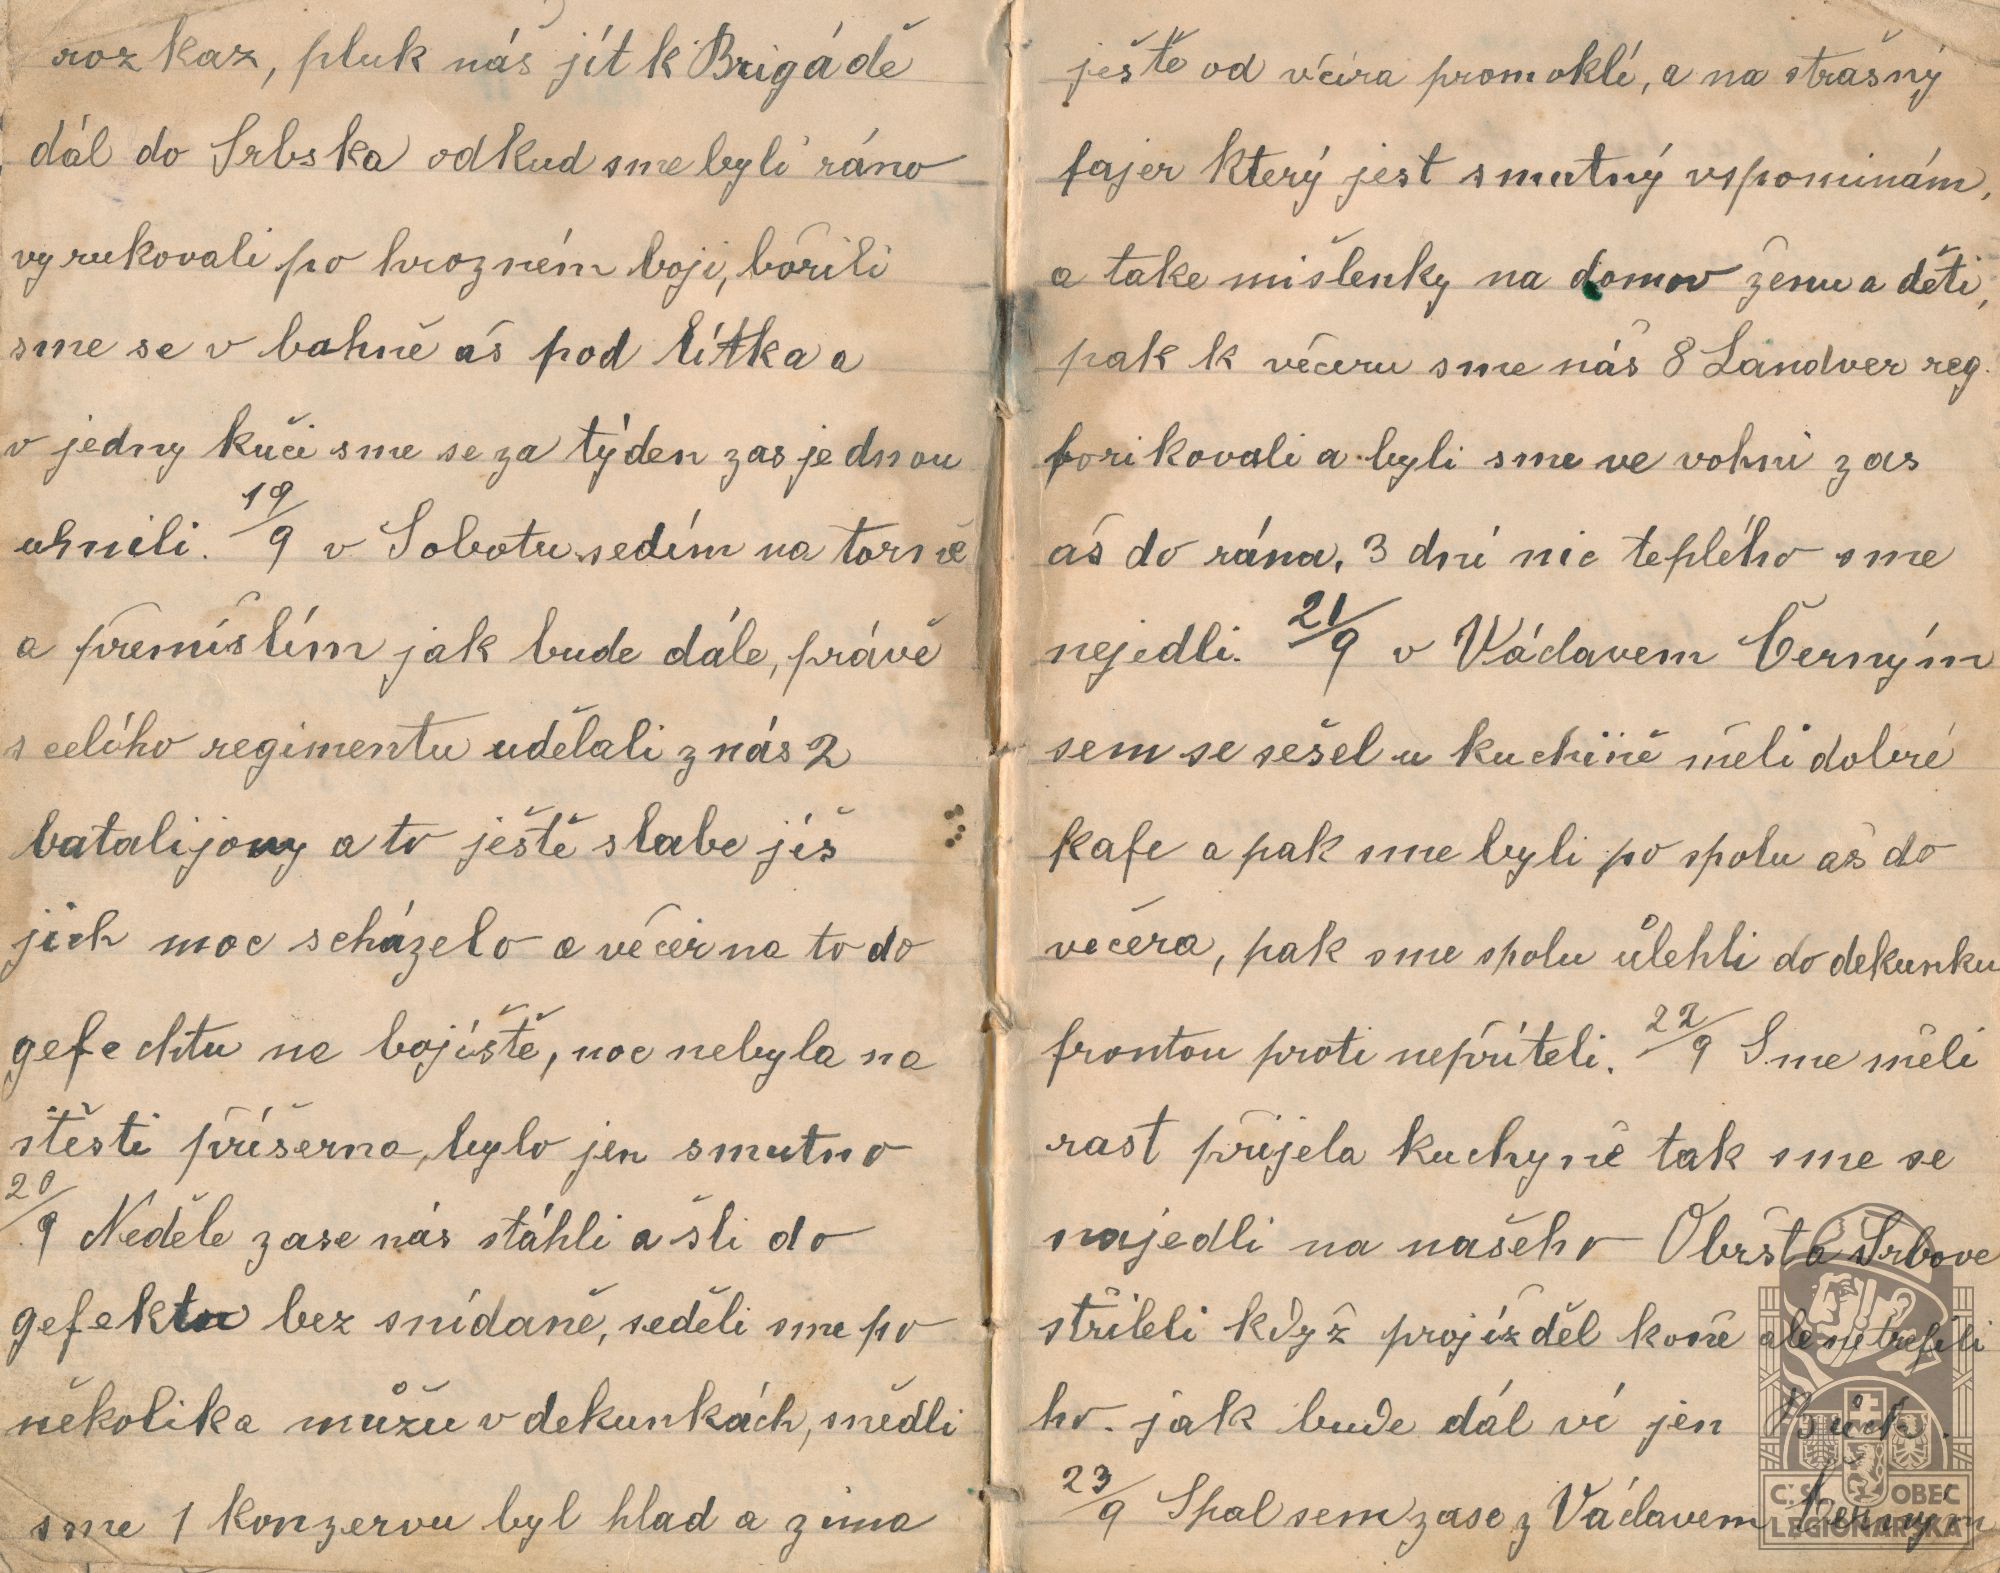 rozkaz, pluk náš jít k Brigádě
dál do Srbska odkud sme byli ráno
vyrukovali po hrozném boji, bořili
sme se v bahně áš pod lítka a
v jedny kuči sme se za týden zas jednou
uhnili. 19/9 v Sobotu sedím na torně
a přemíšlím jak bude dále, právě
s celího regimentu udělali z nás 2
batalijony a to ještě slabe jiš
jich moc scházelo a véčer na to do
gefechtu na bojíště, noc nebyla na
štěsti příšerna, bylo jen smutno
20/9 Neděle zase nás stáhli a šli do
gefektu bez snídaně, seděli sme po
několika můžu v dekunkách, snědli
sme 1 konzervu byl hlad a zima
ještě od véčíra promoklí, a na strašný
fajer který jest smutný vspominám,
a take mišlenky na domov ženu a děti,
pak k véčeru sme náš 8 Landver reg.
forikovali a byli sme ve vohni zas
áš do rána, 3 dní nic teplého sme
nejedli. 21/9 v Václavem Černým
sem se sešel u kuchině měli dobré
kafe a pak sme byli po spolu aš do
večera, pak sme spolu ůlehli do dekunku
frontou proti nepříteli. 22/9 Sme měli
rast přijela kuchyně tak sme se
najedli na našeho Obršta Srbove
stříleli když projížděl koně ale netrefili
ho. jak bude dál ví jen Bůch.
23/9 Spal sem zase z Václavem Černým
Č.S. OBEC
LEGIONÁŘSKÁ